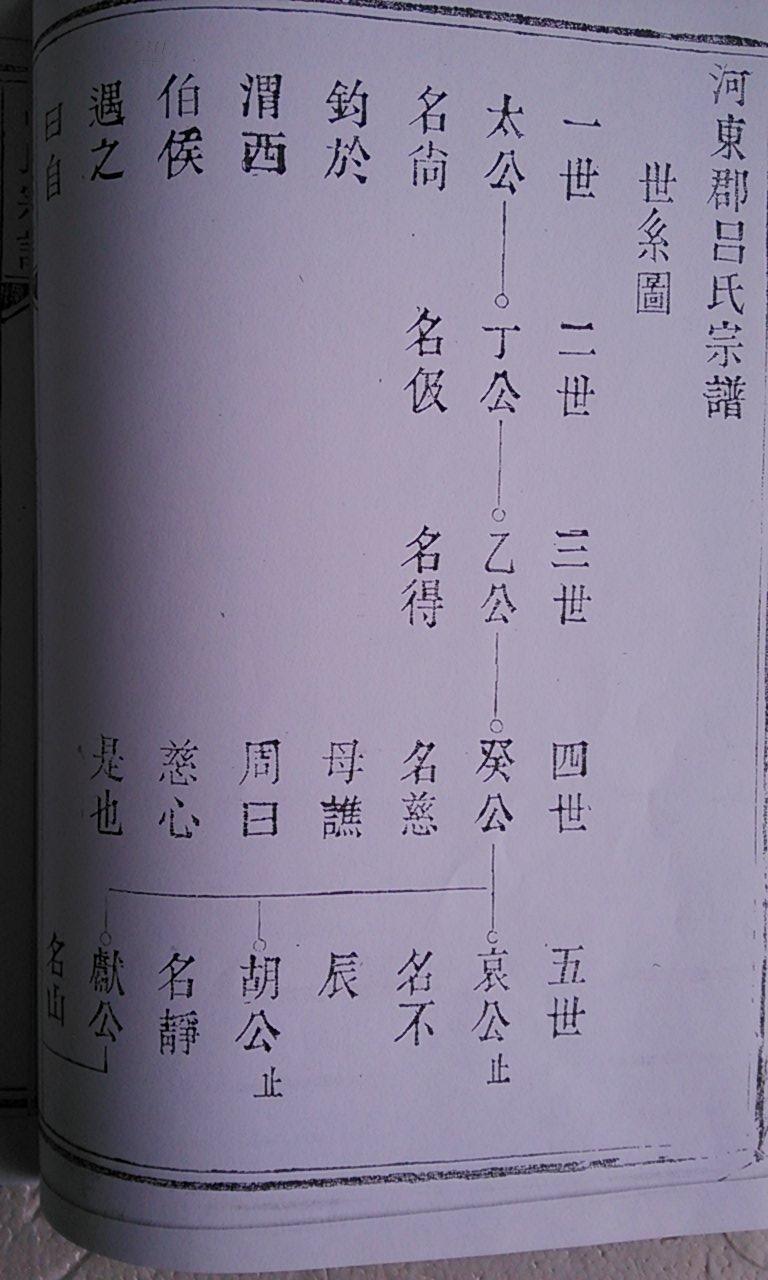 河東郡呂氏宗譜
世系圖
一世
二世
三世
四世
五世
太公
丁公
乙公
癸公
哀公止
名尚
名伋
名得
名慈
名不
釣於
母譙
辰
渭西
周曰
胡公止
伯侯
慈心
名靜
遇之
是也
獻公
曰自
名山